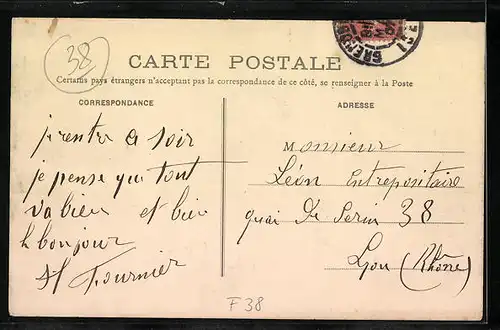 38
CARTE POSTALE
Certains pays étrangers n'acceptant pas la correspondance de ce côté, se renseigner à la Poste
CORRESPONDANCE
je rentre ce soir
je pense que tout
va bien et bien
le bonjour
Fournier
ADRESSE
Monsieur
Léon Entrepositaire
quai de Serin 38
Lyon (Rhône)
F 38